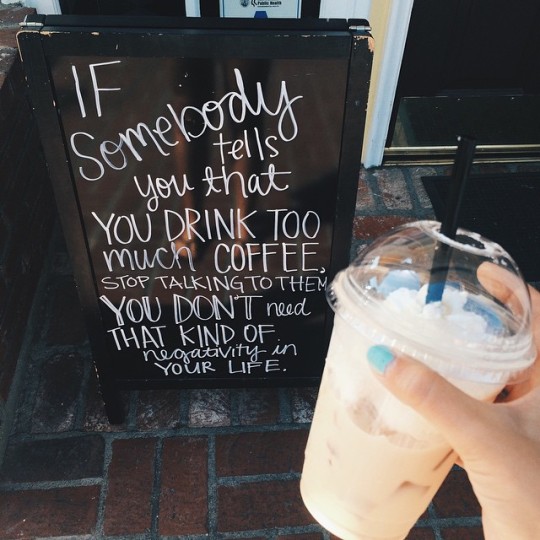 Public Health
IF
Somebody
tells
you that
YOU DRINK TOO
much COFFEE,
STOP TALKING TO THEM
YOU DON'T need
THAT KIND OF
negativity in
YOUR LIFE.